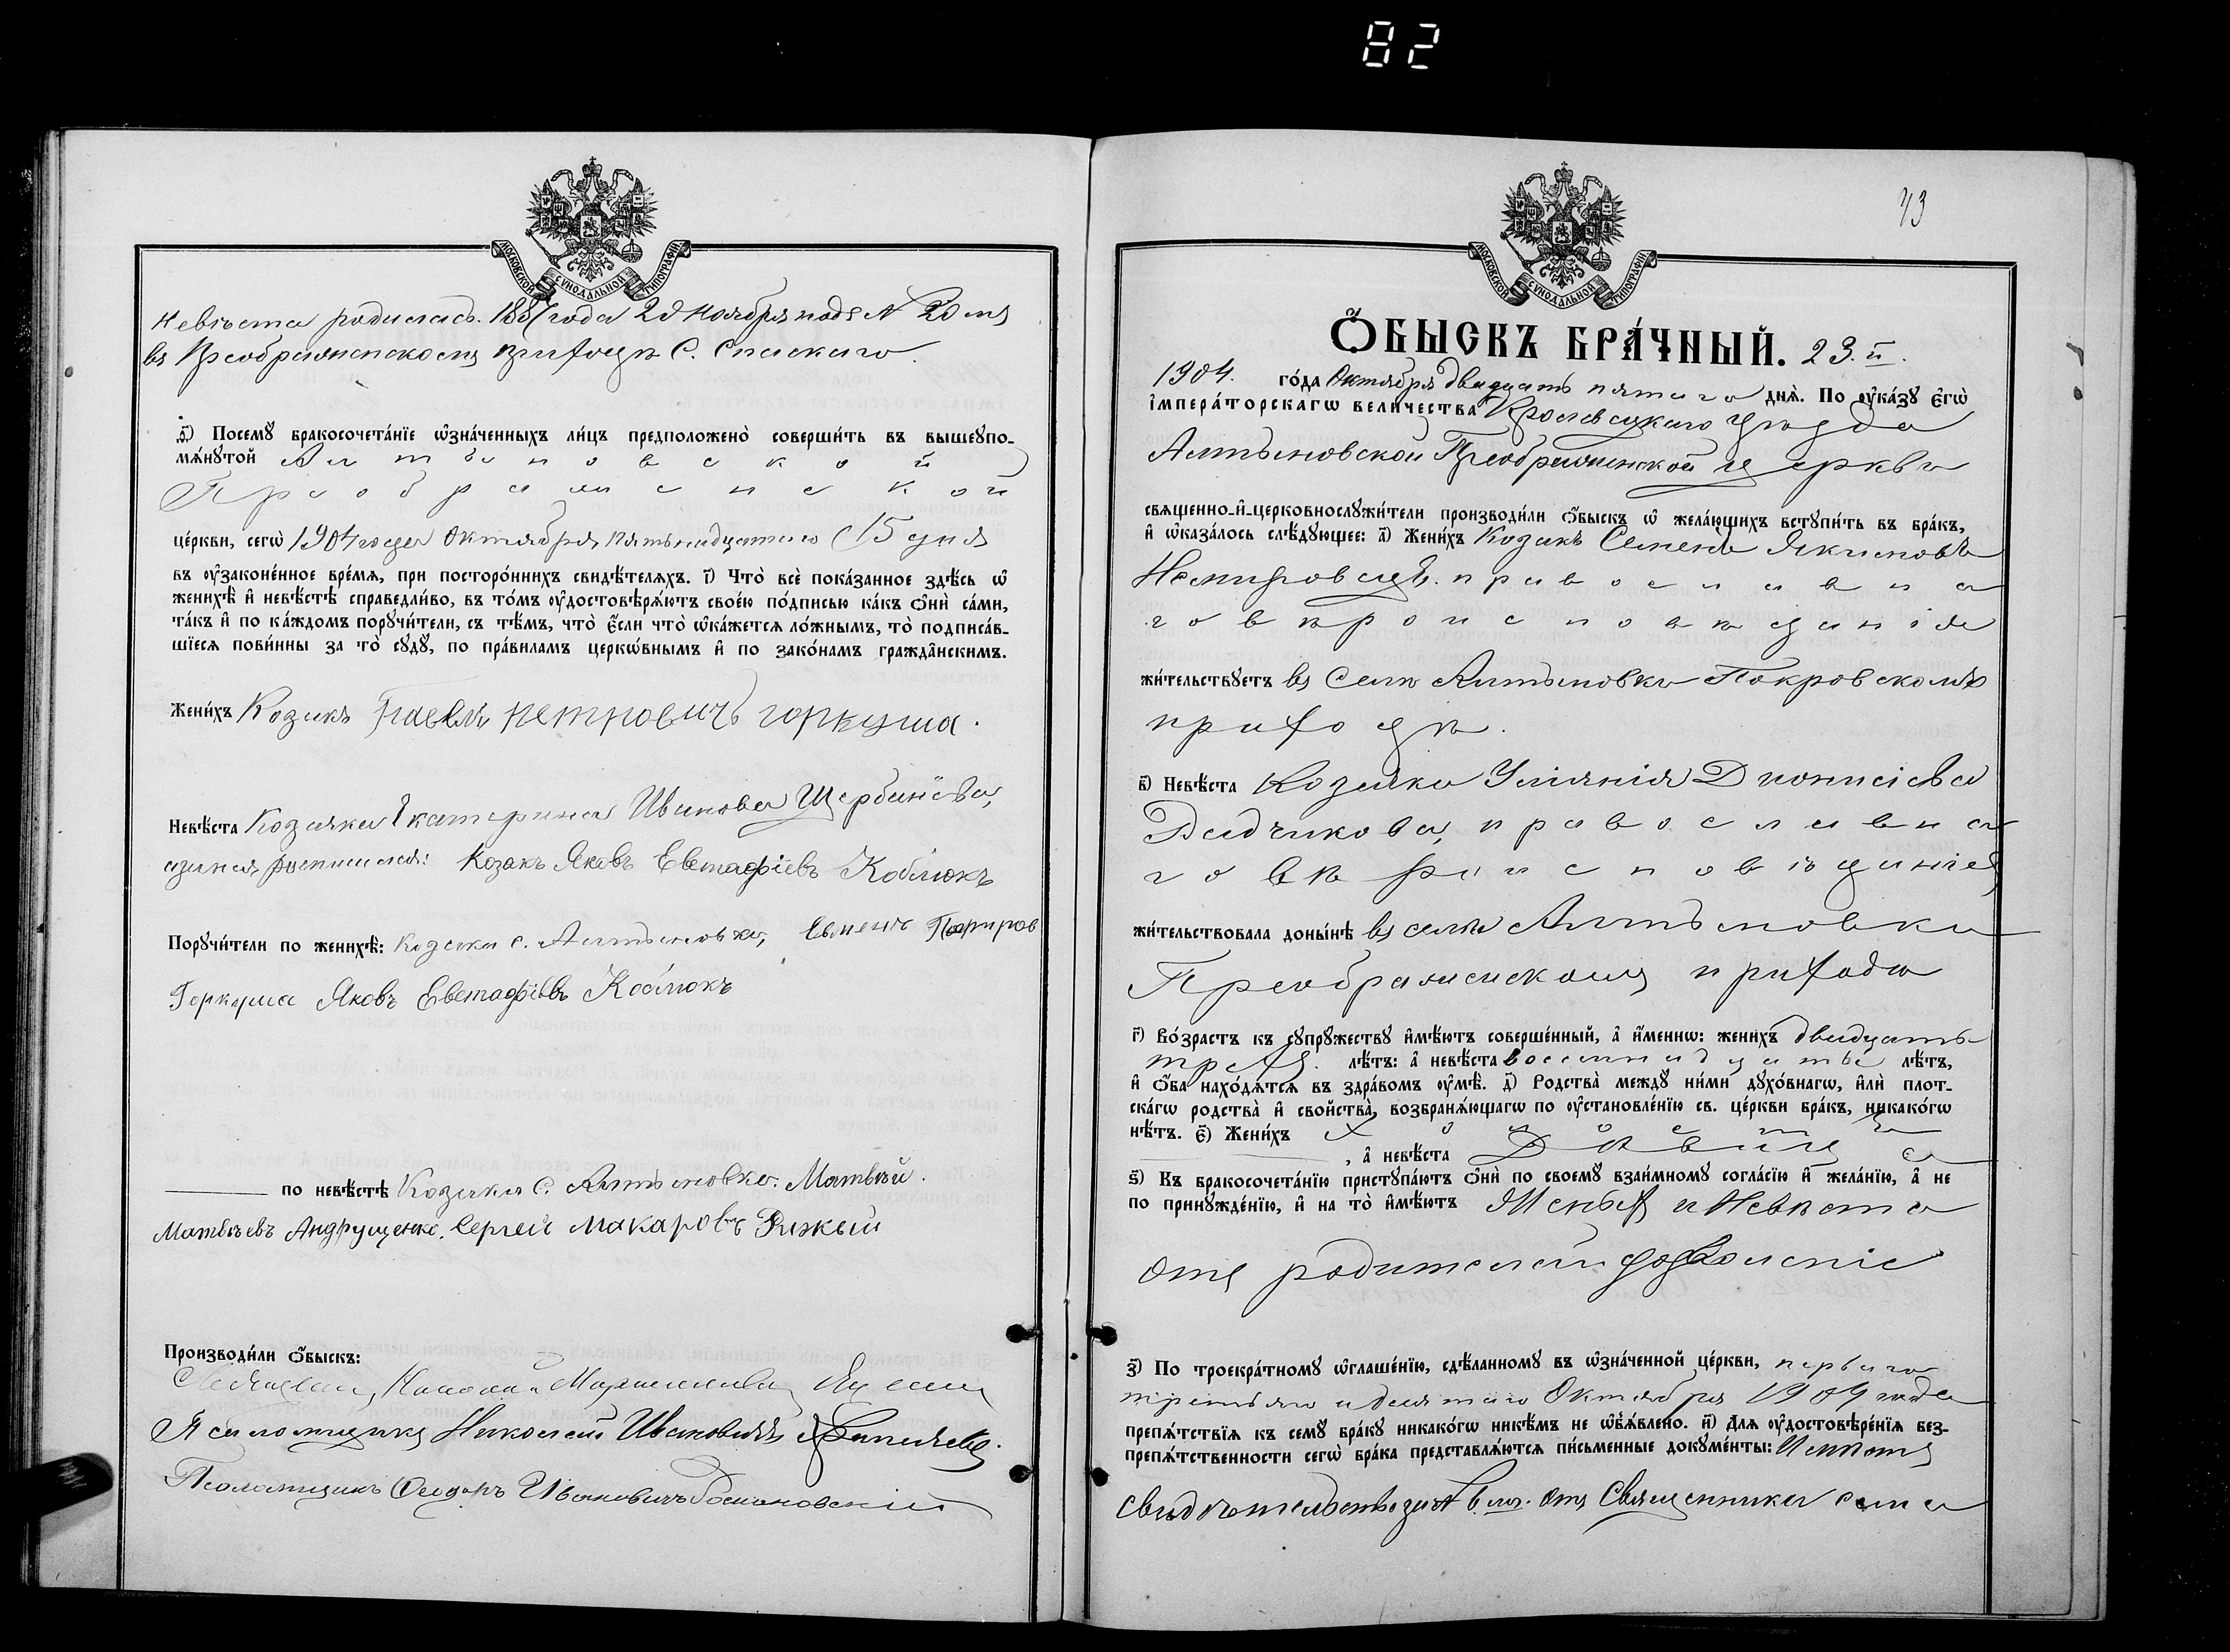 82
МОСКОВСКОЙ СѴНОДАЛЬНОЙ ТИПОГРАФІИ
Невѣста родилась 1887 года 20 ноября подъ № 20 мъ
въ Преображенскомъ приходѣ С. Спаскаго.
ѳ҃) Посемꙋ бракосочета́нїе ѡ҆зна́ченныхъ ли́цъ предположено̀ соверши́ть въ вышеꙋпо-
мѧ́нꙋтой Алтыновской
Преображенской
це́ркви, сегѡ̀ 1904 года Октября пятьнадцатаго 15 дня
въ ᲂу҆законе́нное вре́мѧ, при посторо́ннихъ свидѣ́телѧхъ. і҃) Что̀ всѐ пока́занное здѣ́сь ѡ҆
женихѣ̀ и҆ невѣ́стѣ справедли́во, въ то́мъ ᲂу҆достовѣрѧ́ютъ свое́ю по́дписью ка́къ ѻ҆нѝ са́ми,
та́къ и҆ по ка́ждомъ порꙋчи́тели, съ тѣ́мъ, что̀ є҆́сли что̀ ѡ҆ка́жетсѧ ло́жнымъ, то̀ подписа́в-
шїесѧ пови́нны за то̀ сꙋдꙋ̀, по пра́виламъ церко́внымъ и҆ по зако́намъ гражда́нскимъ.
Жени́хъ Козакъ Павелъ петровичъ горкуша.
Невѣ́ста Козачка Екатерина Иванова Щербинѣва,
росписался: Козакъ Яковъ Евстафіевъ Коблюкъ
Порꙋчи́тели по женихѣ̀: Козаки с. Алтыновки, Евменъ
Горкуша Яковъ Евстафіевъ Коблюкъ
по невѣ́стѣ Козаки С. Алтыновки. Матвѣй
Матвѣевъ Андрущенко. Сергей Макаровъ Рижкый
Производи́ли ѻ҆́быскъ:
Псаломщикъ Николай Ивановичъ
Псаломщикъ Ѳеодоръ Ивановичъ
МОСКОВСКОЙ СѴНОДАЛЬНОЙ ТИПОГРАФІИ
73
Ѻ҆́БЫСКЪ БРА́ЧНЫЙ. 23.й.
1904. го́да Октября двадцать пятаго днѧ̀. По ᲂу҆ка́зꙋ є҆гѡ̀
і҆мпера́торскагѡ вели́чества Кролевецкаго Уѣзда
Алтыновской Преображенской церкви
свѧщенно-и҆-церковнослꙋжи́тели производи́ли ѻ҆́быскъ ѡ҆ жела́ющихъ встꙋпи́ть въ бра́къ,
и҆ ѡ҆каза́лось слѣ́дꙋющее: а҃) Жени́хъ Козакъ Семенъ Якимовъ
Немировецъ. православна
го вѣроисповѣданія
жи́тельствꙋетъ въ Селѣ Алтыновкѣ Покровскомъ
приходѣ.
в҃) Невѣ́ста Козачка Уліянія Діонисіева
Дидчикова, православна
го вѣроисповѣданія
жи́тельствовала доны́нѣ въ селѣ Алтыновки
Преображенскомъ прихода
г҃) Во́зрастъ къ сꙋпрꙋ́жествꙋ и҆мѣ́ютъ соверше́нный, а҆ и҆́меннѡ: жени́хъ двадцать
трехъ. лѣ́тъ: а҆ невѣ́ста восемнадцать лѣ́тъ,
и҆ ѻ҆́ба нахо́дѧтсѧ въ здра́вомъ ᲂу҆мѣ̀. д҃) Родства̀ междꙋ ни́ми дꙋхо́внагѡ, и҆лѝ плот-
ска́гѡ родства̀ и҆ сво́йства̀, возбранѧ́ющагѡ по ᲂу҆становле́нїю св. це́ркви бра́къ, никако́гѡ
нѣ́тъ. є҃) Жени́хъ Холостъ
, а҆ невѣ́ста Дѣвица
ѕ҃) Къ бракосочета́нїю пристꙋпа́ютъ ѻ҆нѝ по своемꙋ̀ взаи́мномꙋ согла́сїю и҆ жела́нїю, а҆ не
по принꙋжде́нїю, и҆ на то̀ и҆мѣ́ютъ Женихъ и Невѣста
отъ родителей дозволеніе
з҃) По троекра́тномꙋ ѡ҆глаше́нїю, сдѣ́ланномꙋ въ ѡ҆зна́ченной це́ркви, перваго
третьяго и девятаго Октября 1904 года
препѧ́тствїѧ къ семꙋ̀ бра́кꙋ никако́гѡ никѣ́мъ не ѡ҆б̾ѧ́влено. и҃) Длѧ ᲂу҆достовѣре́нїѧ без-
препѧ́тственности сегѡ̀ бра́ка представлѧ́ютсѧ пи́сьменные докꙋме́нты:
Свидѣтельство за № отъ Священника села